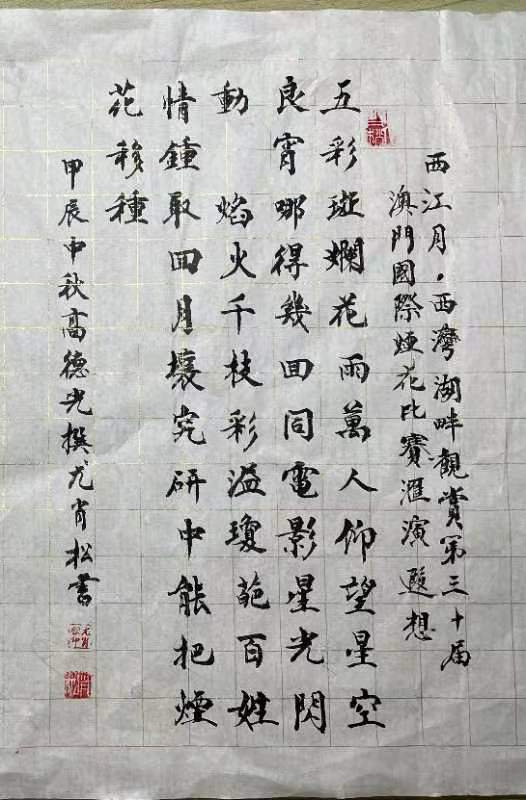 西江月，西灣湖畔觀賞第三十届
澳門國際煙花比賽滙演遐想
五彩斑斕花雨萬人仰望星空
良宵哪得幾回同電影星光閃
動 焰火千枝彩溢瓊葩百姓
情鍾取回月壤究研中能把煙
花移種
甲辰中秋高德光撰尤肖松書